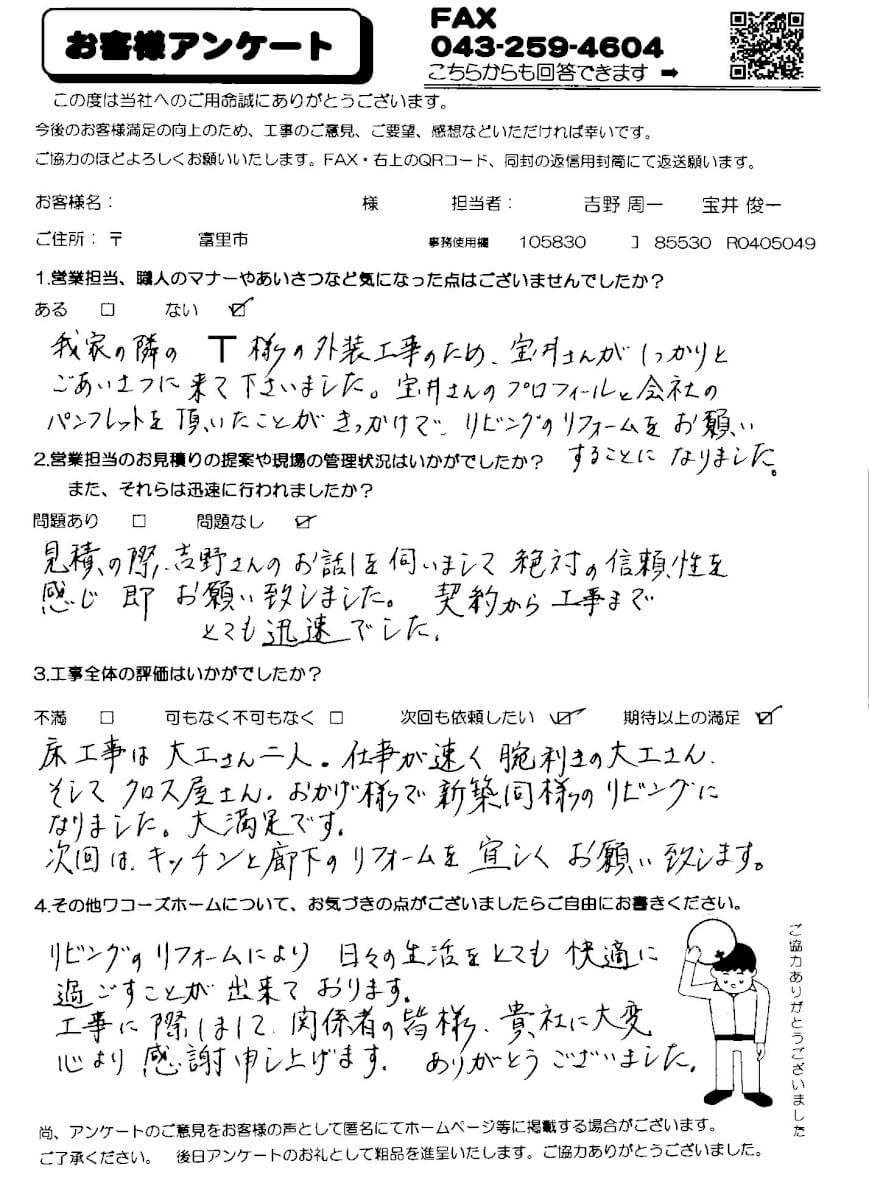 お客様アンケート
FAX
043-259-4604
こちらからも回答できます ➡
この度は当社へのご用命誠にありがとうございます。
今後のお客様満足の向上のため、工事のご意見、ご要望、感想などいただければ幸いです。
ご協力のほどよろしくお願いいたします。FAX・右上のQRコード、同封の返信用封筒にて返送願います。
お客様名： 様 担当者： 吉野 周一 宝井 俊一
ご住所：〒 富里市 事務使用欄 105830 】 85530 R0405049
1.営業担当、職人のマナーやあいさつなど気になった点はございませんでしたか？
ある □ ない ☑
我家の隣の T 様の外装工事のため、宝井さんがしっかりと
ごあいさつに来て下さいました。宝井さんのプロフィールと会社の
パンフレットを頂いたことがきっかけで、リビングのリフォームをお願い
することになりました。
2.営業担当のお見積りの提案や現場の管理状況はいかがでしたか？
また、それらは迅速に行われましたか？
問題あり □ 問題なし ☑
見積の際、吉野さんのお話しを伺いまして絶対の信頼性を
感じ 即 お願い致しました。 契約から工事まで
とても迅速でした。
3.工事全体の評価はいかがでしたか？
不満 □ 可もなく不可もなく □ 次回も依頼したい ☑ 期待以上の満足 ☑
床工事は大工さん二人。仕事が速く腕利きの大工さん、
そしてクロス屋さん。おかげ様で新築同様のリビングに
なりました。大満足です。
次回は、キッチンと廊下のリフォームを宜しくお願い致します。
4.その他ワコーズホームについて、お気づきの点がございましたらご自由にお書きください。
リビングのリフォームにより 日々の生活をとても快適に
過ごすことが出来ております。
工事に際しまして、関係者の皆様、貴社に大変
心より感謝申し上げます。 ありがとうございました。
ご協力ありがとうございました
尚、アンケートのご意見をお客様の声として匿名にてホームページ等に掲載する場合がございます。
ご了承ください。 後日アンケートのお礼として粗品を進呈いたします。ご協力ありがとうございました。